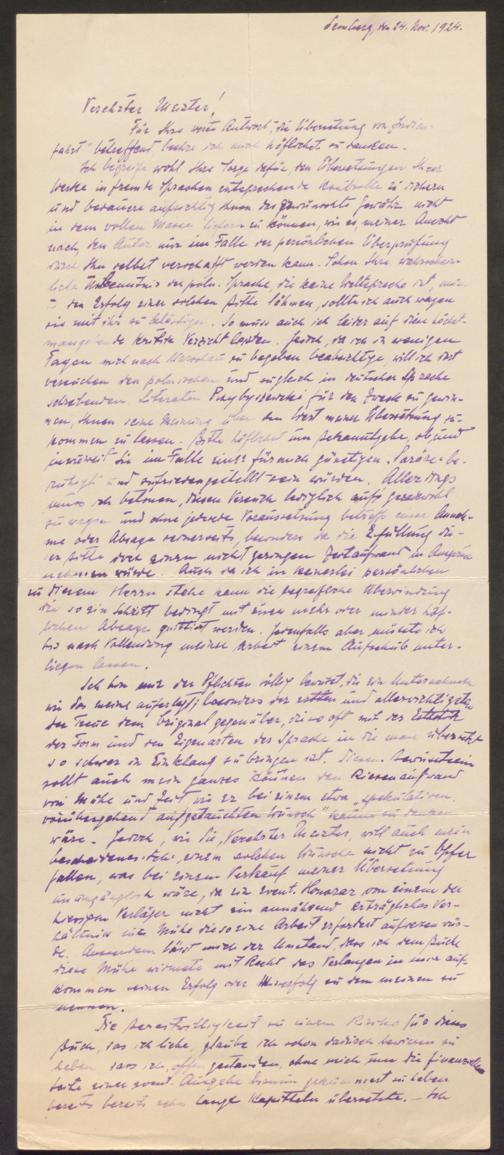 Lemberg, den 24. Nov. 1924.
Verehrter Meister!
Für Ihre werte Antwort, die Übersetzung von „Indien-
fahrt" betreffend beehre ich mich höflichst zu danken.
Ich begreife wohl Ihre Sorge dafür, den Übersetzungen Ihrer
Werke in fremde Sprachen entsprechende Kontrolle zu sichern
und bedauere aufrichtig Ihnen die gewünschte Gewähr nicht
in dem vollen Masse liefern zu können, wie es, meiner Ansicht
nach, den Autor nur im Falle der persönlichen Überprüfung
durch ihn selbst verschafft werden kann. Schon Ihre wahrschein-
liche Unkenntnis der poln. Sprache, die keine Weltsprache ist,
den Erfolg einer solchen Bitte lähmen, sollte ich auch wagen
sie mit ihr zu belästigen. So muss auch ich leider auf diese höchst-
massgebende Kritik Verzicht leisten. Jedoch, da ich in wenigen
Tagen mich nach Warschau zu begeben beabsichtige, will ich dort
versuchen den polnischen und zugleich in deutscher Sprache
schreibenden Literaten Przybyszewski für den Zweck zu gewin-
nen, Ihnen seine Meinung über den Wert meiner Übersetzung zu-
kommen zu lassen. Bitte höflichst um Bekanntgabe, ob und
inwieweit Sie im Falle einer für mich günstigen
und zufriedengestellt sein würden. Allerdings
muss ich betonen, diesen Versuch lediglich aufs geratewohl
zu wagen und ohne jedwede Voraussetzung betreffs einer Annah-
me oder Absage seinerseits, besonders da die Erfüllung die-
ser Bitte doch einen nicht geringen Zeitaufwand in Anspruch
nehmen würde. Auch da ich in keinerlei persönlichen
zu diesem Herrn stehe kann die begreifliche Überwindung
die so ein Schritt bedingt mit einer mehr oder minder höf-
lichen Absage quittiert werden. Jedenfalls aber müsste ich
bis nach Vollendung meiner Arbeit einem Aufschub unter-
liegen lassen.
Ich bin mir der Pflichten völlig bewusst, die ein Unternehmen
wie das meine auferlegt; besonders der ersten und allerwichtigsten
der Treue dem Original gegenüber, die so oft mit der Ästhetik
der Form und den Eigenarten der Sprache in die man übersetzt
so schwer in Einklang zu bringen ist. Diesem Bewusstsein
zollt auch mein ganzes Können den Riesenaufwand
von Mühe und Zeit, wie er bei einem etwa „spekulativen
vorübergehend aufgetauchten Wunsch" kaum zu denken
wäre. Jedoch, wie Sie, Verehrter Meister, will auch mein
bescheidenes Ich, einem solchen Wunsche nicht zu Opfer
fallen, was bei einem Verkauf meiner Übersetzung
unumgänglich wäre, da ein event. Honorar von einem der
hiesigen Verläger nicht ein annähernd erträgliches Ver-
hältnis zur Mühe die so eine Arbeit erfordert aufweisen wür-
de. Ausserdem lässt mich der Umstand, dass ich dem Buche
diese Mühe widmete mit Recht das Verlangen in mir auf-
kommen seinen Erfolg oder Misserfolg zu dem meinen zu
nennen.
Die Bereitwilligkeit zu einem Risiko für dieses
Buch, das ich liebe, glaube ich schon dadurch bewiesen zu
haben, dass ich, offen gestanden, ohne mich um die finanzielle
Seite einer event. Ausgabe gekümmert zu haben
bereits bereits zehn lange Kapitteln übersetzte. – Ich